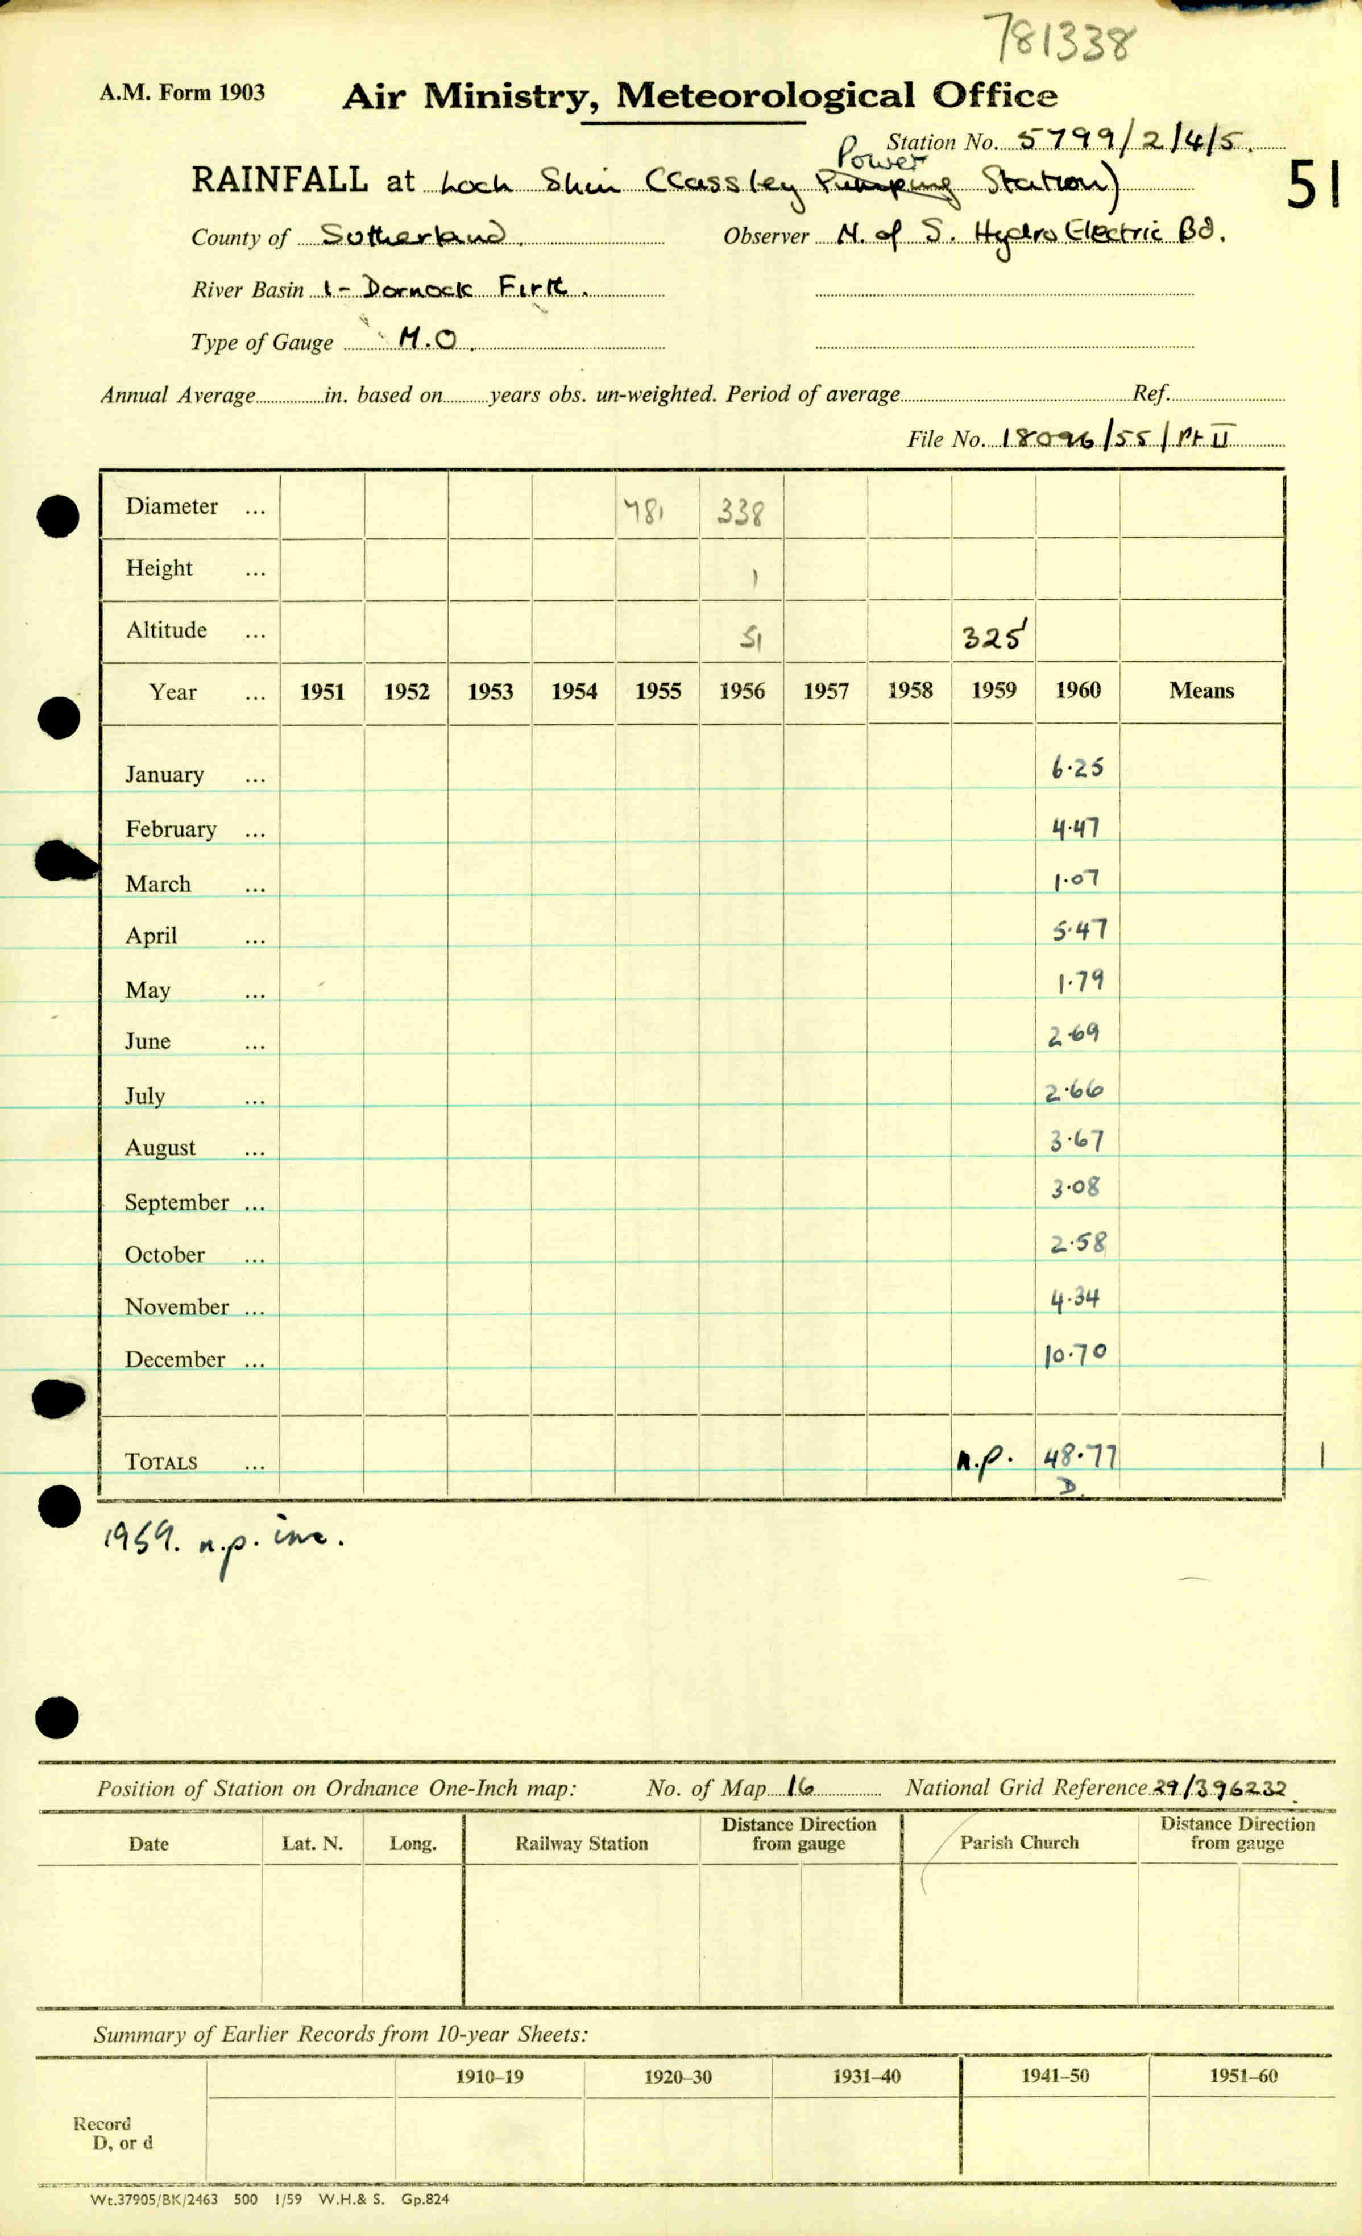 781338
A.M. Form 1903 Air Ministry, Meteorological Office
Station No. 5799/2/4/5.
Power
RAINFALL at Loch Shin (Cassley Pumping Station) 51
County of Sutherland. Observer N. of S. Hydro Electric Bd.
River Basin 1 - Dornock Firth.
Type of Gauge M.O.
Annual Average in. based on years obs. un-weighted. Period of average Ref.
File No. 18096/55/Pt II
Diameter ... 781 338
Height ... 1
Altitude ... 51 325'
Year ... 1951 1952 1953 1954 1955 1956 1957 1958 1959 1960 Means
January ... 6.25
February ... 4.47
March ... 1.07
April ... 5.47
May ... 1.79
June ... 2.69
July ... 2.66
August ... 3.67
September ... 3.08
October ... 2.58
November ... 4.34
December ... 10.70
TOTALS ... n.p. 48.77 1
D.
1959. n.p. inc.
Position of Station on Ordnance One-Inch map: No. of Map 16 National Grid Reference 29/396232.
Date Lat. N. Long. Railway Station Distance Direction from gauge Parish Church Distance Direction from gauge
Summary of Earlier Records from 10-year Sheets:
1910-19 1920-30 1931-40 1941-50 1951-60
Record
D, or d
Wt.37905/BK/2463 500 1/59 W.H.& S. Gp.824